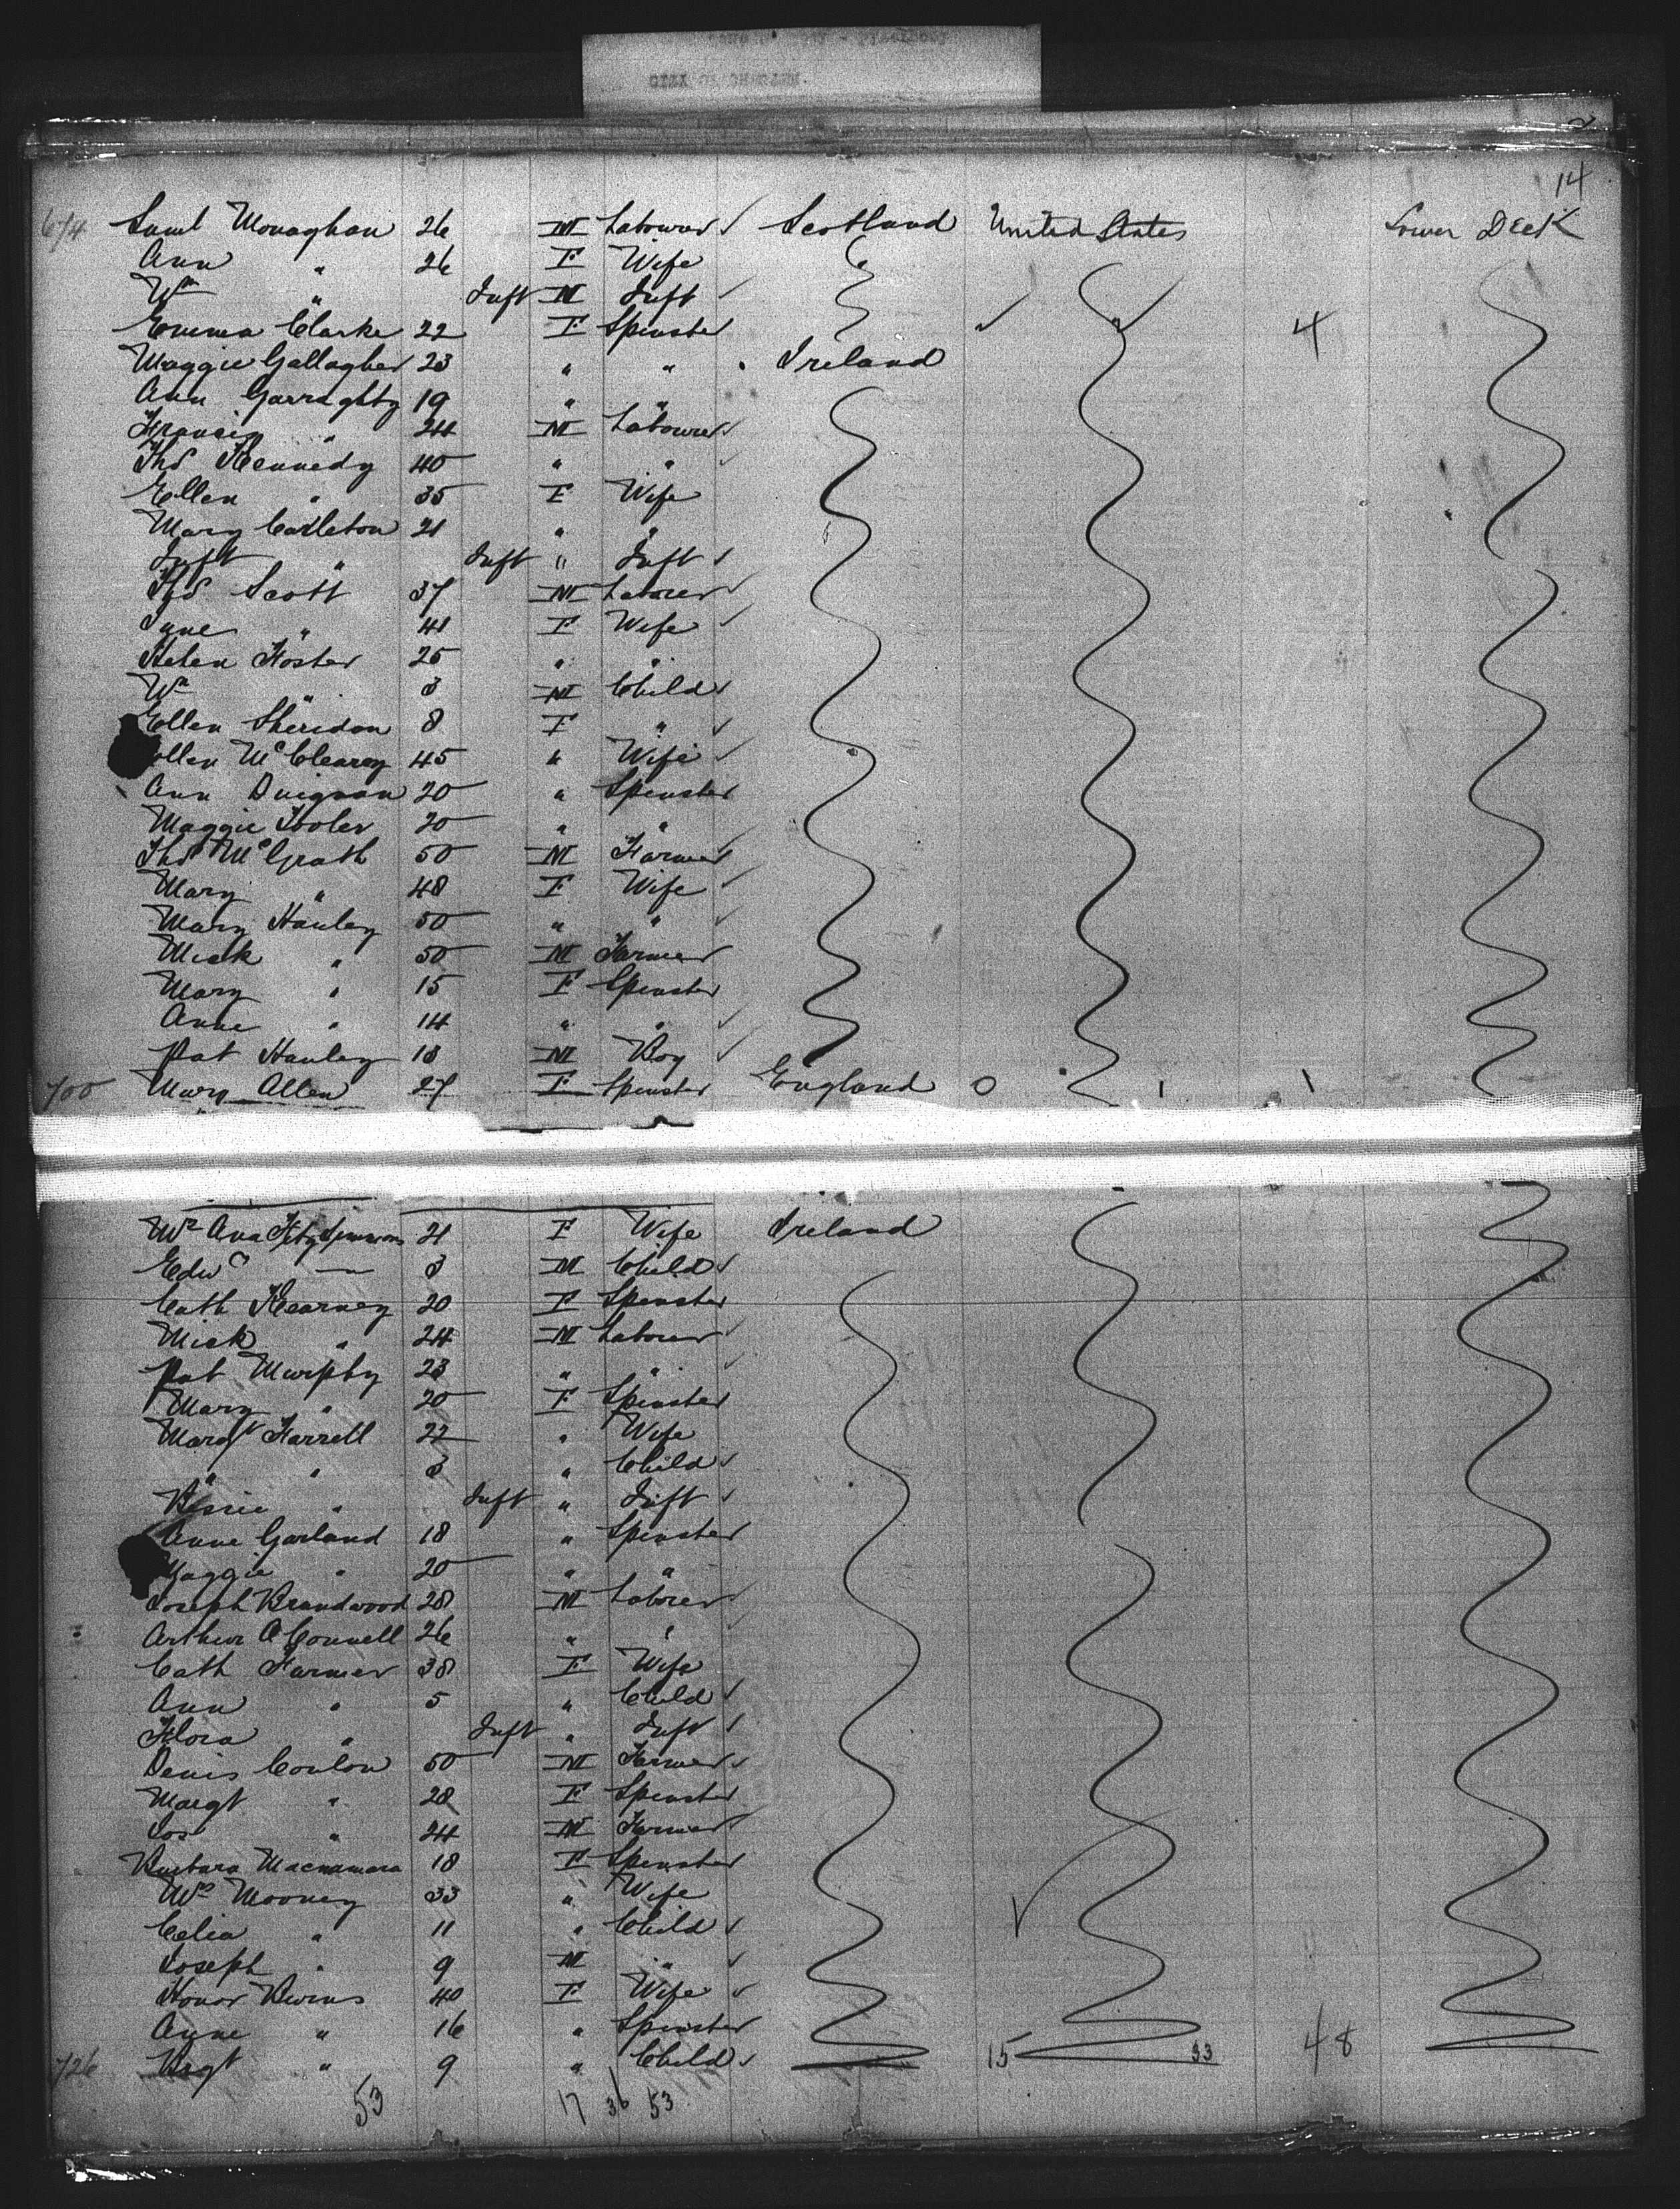 14
674 Saml Monaghan 26 M Labourer Scotland United States Lower Deck
Ann " 26 F Wife
Wm " Inft M Inft
Emma Clarke 22 F Spinster 4
Maggie Gallagher 23 " " Ireland
Ann Garraghty 19 " "
Francis " 24 M Labourer
Thos Kennedy 40 " "
Ellen " 35 F Wife
Mary Carleton 21 " "
Inft " Inft " Inft
Thos Scott 37 M Laborer
Jane " 41 F Wife
Helen Foster 25 " "
Wm " 3 M Child
Ellen Sheridan 8 F "
Ellen McCleary 45 " Wife
Ann Duignan 20 " Spinster
Maggie 20 " "
Thos McGrath 50 M Farmer
Mary " 48 F Wife
Mary Hanley 50 " "
Mick " 50 M Farmer
Mary " 15 F Spinster
Anne " 14 " "
Pat Hanley 13 M Boy
700 Mary Allen 27 F Spinster England 0 1 1
Ann Fitzsimmons 21 F Wife Ireland
Edwd — 3 M Child
Cath Kearney 20 F Spinster
Mick " 24 M Laborer
Pat Murphy 23 " "
Mary " 20 F Spinster
Margt Farrell 22 " Wife
" " 3 " Child
Bessie " Inft " Inft
Anne Garland 18 " Spinster
Maggie " 20 " "
Joseph Brandwood 28 M Laborer
Arthur O'Connell 26 " "
Cath Farmer 38 F Wife
Ann " 5 " Child
Flora " Inft " Inft
Denis Conlon 50 M Farmer
Margt " 28 F Spinster
Jos " 24 M Farmer
Barbara Macnamara 18 F Spinster
Mooney 33 " Wife
Celia " 11 " Child
Joseph " 9 M "
Honor 40 F Wife
Anne " 16 " Spinster
726 " 9 " Child 15 33 48
53 17 36 53